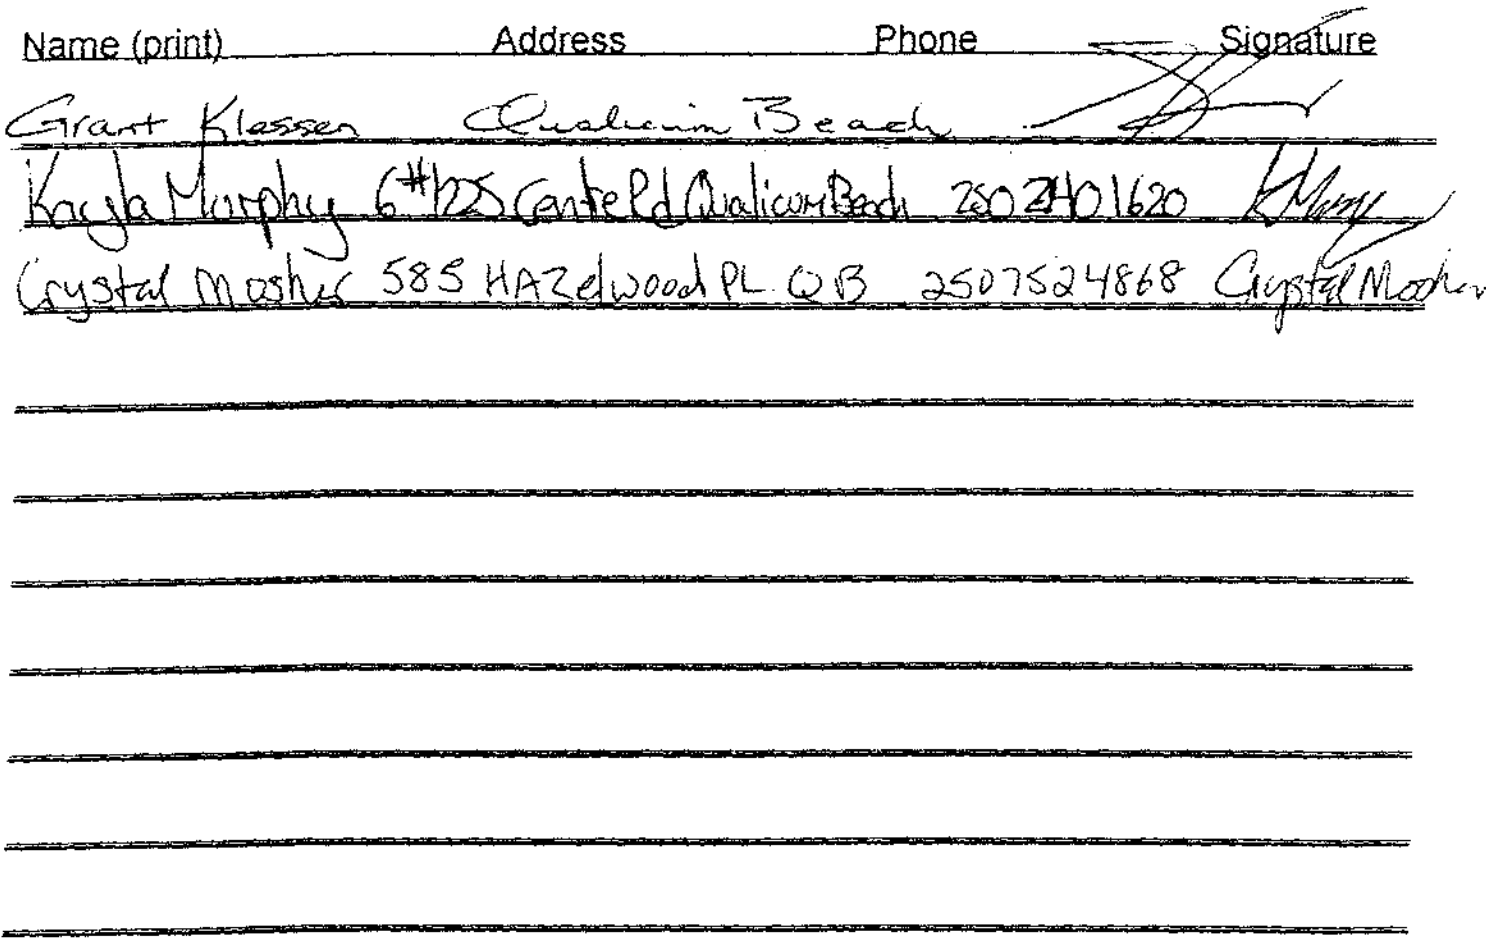 Name (print) Address Phone Signature
Grant Klassen Qualicum Beach
Kayla Murphy 6#1225 Centre Rd Qualicum Beach 250 240 1620
Crystal Mosher 585 HAZelwood PL. QB 2507524868 Crystal Mosher